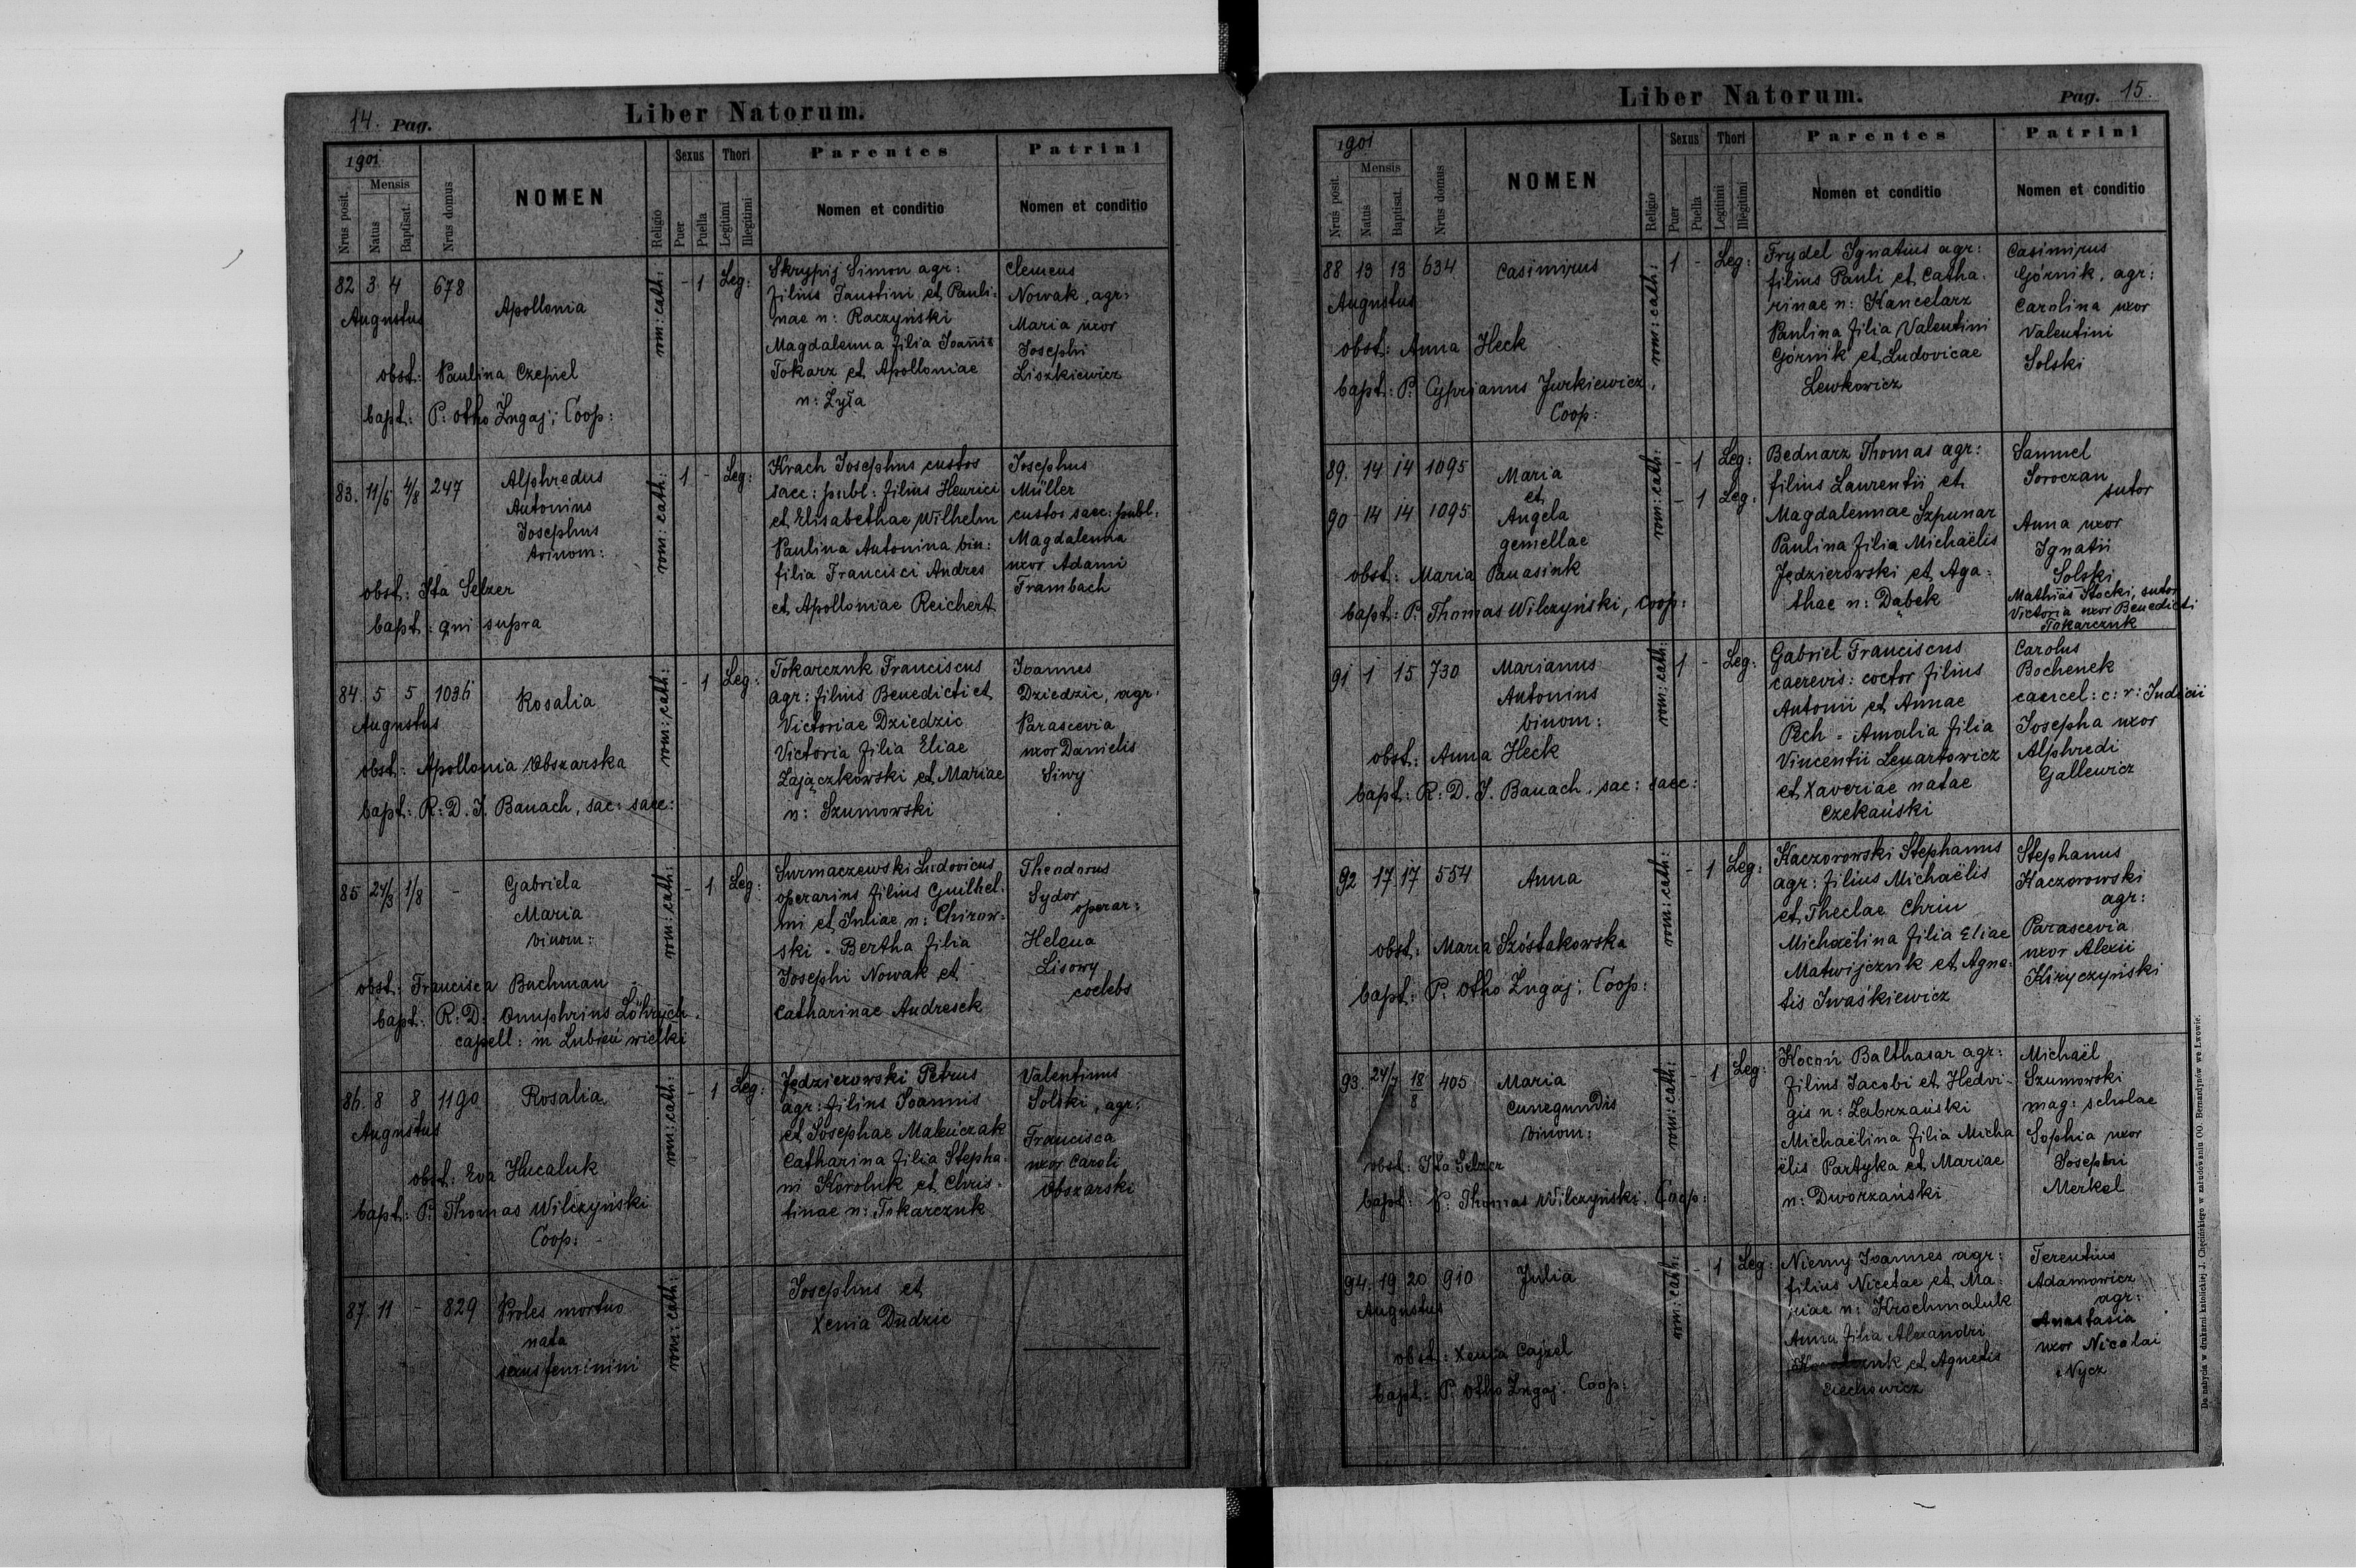 14. Pag.
Liber Natorum.
1901
Mensis
Nrus posit.
Natus
Baptisat.
Nrus domus
NOMEN
Religio
Sexus
Puer
Puella
Thori
Legitimi
Illegitimi
Parentes
Nomen et conditio
Patrini
Nomen et conditio
82 3 4 678
Augustus
Apollonia
obst: Paulina Czepiel
bapt: P. Otho Żugaj; Coop:
rom: cath:
- 1 Leg:
Skrypij Simon agr:
filius Faustini et Pauli-
nae n: Raczyński
Magdalenna filia Joannis
Tokarz et Apolloniae
n: Żyła
Clemens
Nowak, agr:
Maria uxor
Josephi
Liszkiewicz
83. 11/5 4/8 247
Alphredus
Antonius
Josephus
trinom:
obst: Ita Selzer
bapt: qui supra
rom: cath:
1 - Leg:
Krach Josephus custos
sacc: publ: filius Henrici
et Elisabethae Wilhelm
Paulina Antonina bin:
filia Francisci Andres
et Apolloniae Reichert
Josephus
Müller
custos sacc: publ.
Magdalenna
uxor Adami
Trambach
84. 5 5 1036
Augustus
Rosalia
obst: Apollonia Obszarska
bapt: R: D. J. Banach, sac: saec:
rom: cath:
- 1 Leg:
Tokarczuk Franciscus
agr: filius Benedicti et
Victoriae Dziedzic
Victoria filia Eliae
Zajączkowski et Mariae
n: Szumowski
Joannes
Dziedzic, agr:
Parascevia
uxor Danielis
Siwy
85 27/3 1/8 -
Gabriela
Maria
binom:
obst: Francisca Buchman
bapt: R: D: Onuphrius Löhrych.
capell: in Lubień wielki
rom: cath:
- 1 Leg:
Surmaczewski Ludovicus
operarius filius Guilhel-
mi et Juliae n: Chirow-
ski. Bertha filia
Josephi Nowak et
Catharinae Andresek
Theodorus
Sydor
operar:
Helena
Lisowy
coelebs
86. 8 8 1190
Augustus
Rosalia
obst: Eva Hucaluk
bapt: P. Thomas Wilczyński
Coop:
rom: cath:
- 1 Leg:
Jędzierowski Petrus
agr: filius Joannis
et Josephae
Catharina filia Stepha-
ni Koroluk et Chris-
tinae n: Tokarczuk
Valentinus
Solski, agr:
Francisca
uxor Caroli
Obszarski
87. 11 - 829
Proles mortuo
nata
sexus feminini
rom: cath:
Josephus et
Xenia Dudzic
Liber Natorum.
Pag. 15.
1901
Mensis
Nrus posit.
Natus
Baptisat.
Nrus domus
NOMEN
Religio
Sexus
Puer
Puella
Thori
Legitimi
Illegitimi
Parentes
Nomen et conditio
Patrini
Nomen et conditio
88 13 13 634
Augustus
Casimirus
obst: Anna Heck
bapt: P. Cyprianus Jurkiewicz,
Coop:
rom: cath:
1 - Leg:
Frydel Ignatius agr:
filius Pauli et Catha-
rinae n: Kancelarz
Paulina filia Valentini
Górnik et Ludovicae
Lewkowicz
Casimirus
Górnik, agr:
Carolina uxor
Valentini
Solski
89. 14 14 1095
Maria
et
90 14 14 1095
Angela
gemellae
obst: Maria Panasiuk
bapt: P. Thomas Wilczyński, Coop:
rom: cath:
- 1 Leg:
- 1 Leg:
Bednarz Thomas agr:
filius Laurentii et
Magdalennae Szpunar
Paulina filia Michaëlis
Jędzierowski et Aga-
thae n: Dąbek
Samuel
Soroczan
sutor
Anna uxor
Ignatii
Solski
Mathias Stocki, sutor
Victoria uxor Benedicti
Tokarczuk
91 1 15 730
Marianus
Antonius
binom:
obst: Anna Heck
bapt: R: D. J. Banach, sac: saec:
rom: cath:
1 - Leg:
Gabriel Franciscus
caerevis: coctor filius
Antonii et Annae
Pech - Amalia filia
Vincentii Lenartowicz
et Xaveriae natae
Czekański
Carolus
Bochenek
cancel: c: r: Judicii
Josepha uxor
Alphredi
Gallewicz
92 17 17 554
Anna
obst: Maria Szóstakowska
bapt: P. Otho Żugaj: Coop:
rom: cath:
- 1 Leg:
Kaczorowski Stephanus
agr: filius Michaëlis
et Theclae Chriu
Michaëlina filia Eliae
Matwijczuk et Agne-
tis Iwaśkiewicz
Stephanus
Kaczorowski
agr:
Parascevia
uxor Alexii
Kiryczyński
93. 24/7 18/8 405
Maria
Cunegundis
binom:
obst: Ita Selzer
bapt: P. Thomas Wilczyński. Coop:
rom: cath:
- 1 Leg:
Kocoń Balthasar agr:
filius Jacobi et Hedvi-
gis n: Zabrzański
Michaëlina filia Micha
ëlis Partyka et Mariae
n: Dworzański
Michaël
Szumowski
mag: scholae
Sophia uxor
Josephi
Merkel
94. 19 20 910
Augustus
Julia
obst: Xenia Cajzel
bapt: P. Otho Żugaj. Coop:
rom: cath:
- 1 Leg:
Niemy Joannes agr:
filius Nicetae et Ma-
riae n: Krochmaluk
Anna filia Alexandri
et Agnetis
Ciechowicz
Terentius
Adamowicz
agr:
Anastasia
uxor Nicolai
Nycz
Do nabycia w drukarni katolickiej J. Chęcińskiego w zabudowaniu OO. Bernardynów we Lwowie.